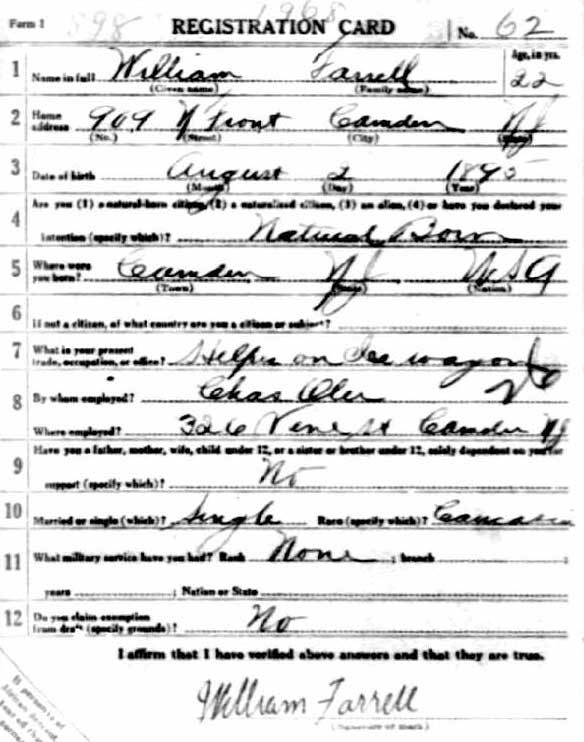 1968
Form 1 898 REGISTRATION CARD No. 62
Age, in yrs.
1 Name in full William Farrell 22
(Given name) (Family name)
2 Home address 909 N Front Camden NJ
(No.) (Street) (City) (State)
3 Date of birth August 2 1895
(Month) (Day) (Year)
4 Are you (1) a natural-born citizen, (2) a naturalized citizen, (3) an alien, (4) or have you declared your
intention (specify which)? Natural Born
5 Where were you born? Camden NJ USA
(Town) (State) (Nation)
6 If not a citizen, of what country are you a citizen or subject?
7 What is your present trade, occupation, or office? Helper on Ice wagon
8 By whom employed? Chas Oler
Where employed? 326 Vine St Camden NJ
9 Have you a father, mother, wife, child under 12, or a sister or brother under 12, solely dependent on you for
support (specify which)? No
10 Married or single (which)? Single Race (specify which)? Caucasian
11 What military service have you had? Rank None ; branch ;
years ; Nation or State
12 Do you claim exemption from draft (specify grounds)? No
I affirm that I have verified above answers and that they are true.
William Farrell
(Signature or mark)
If person is of